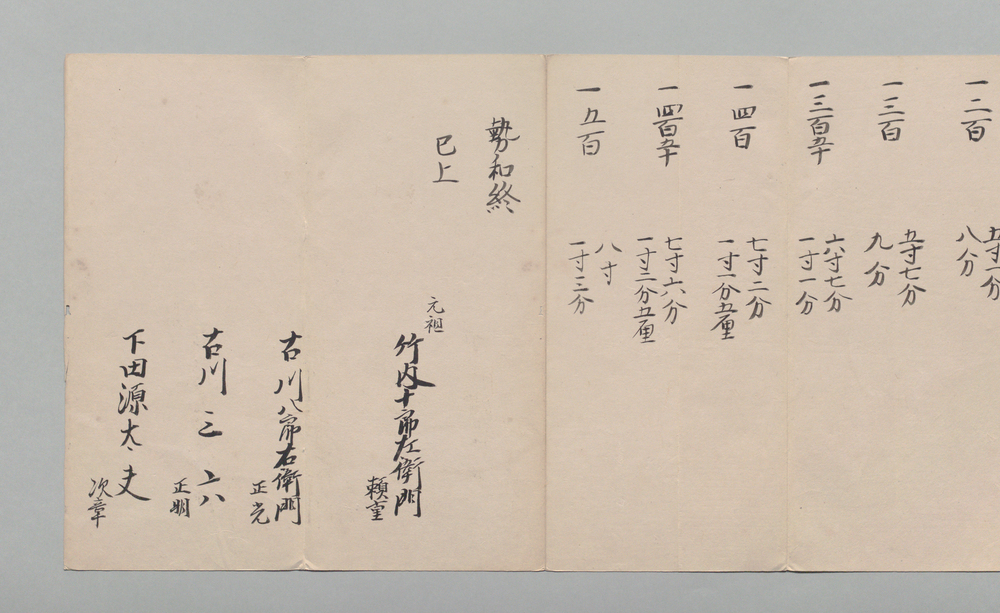 一二百
五寸一分
八分
一三百
五寸七分
九分
一三百五十
六寸七分
一寸一分
一四百
七寸二分
一寸一分五厘
一四百五十
七寸六分
一寸二分五厘
一五百
八寸
一寸三分
勢和終
已上
元祖
竹内十郎左衛門
頼重
古川八郎右衛門
正光
古川三六
正明
下田源太夫
次章